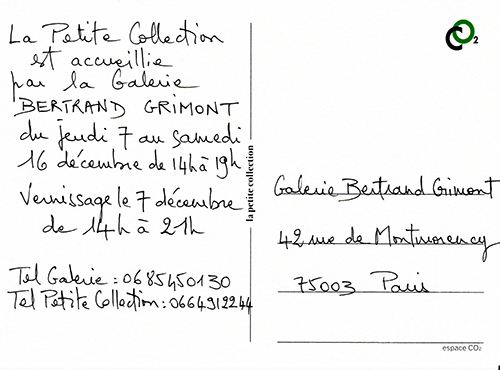 La Petite Collection
est accueillie
par la Galerie
BERTRAND GRIMONT
du jeudi 7 au samedi
16 décembre de 14h à 19h
Vernissage le 7 décembre
de 14h à 21h
Tel Galerie : 0685450130
Tel Petite Collection : 0664912244
la petite collection
CO2
Galerie Bertrand Grimont
42 rue de Montmorency
75003 Paris
espace CO2